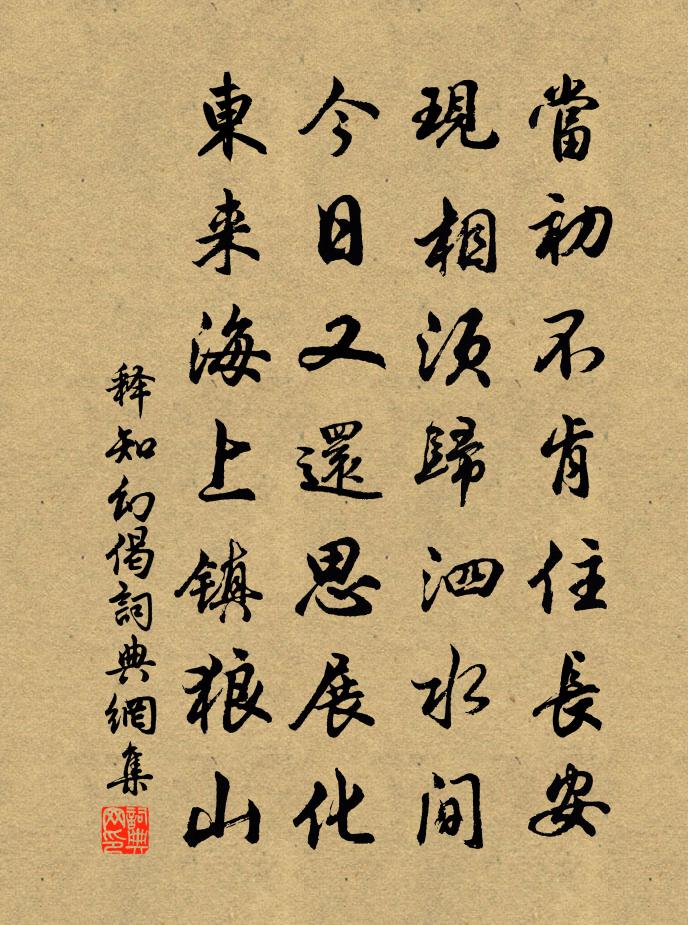 當初不肯住長安
現相須歸泗水間
今日又還思展化
東来海上鎮狼山
释知幻偈詞典網集
詞典网印